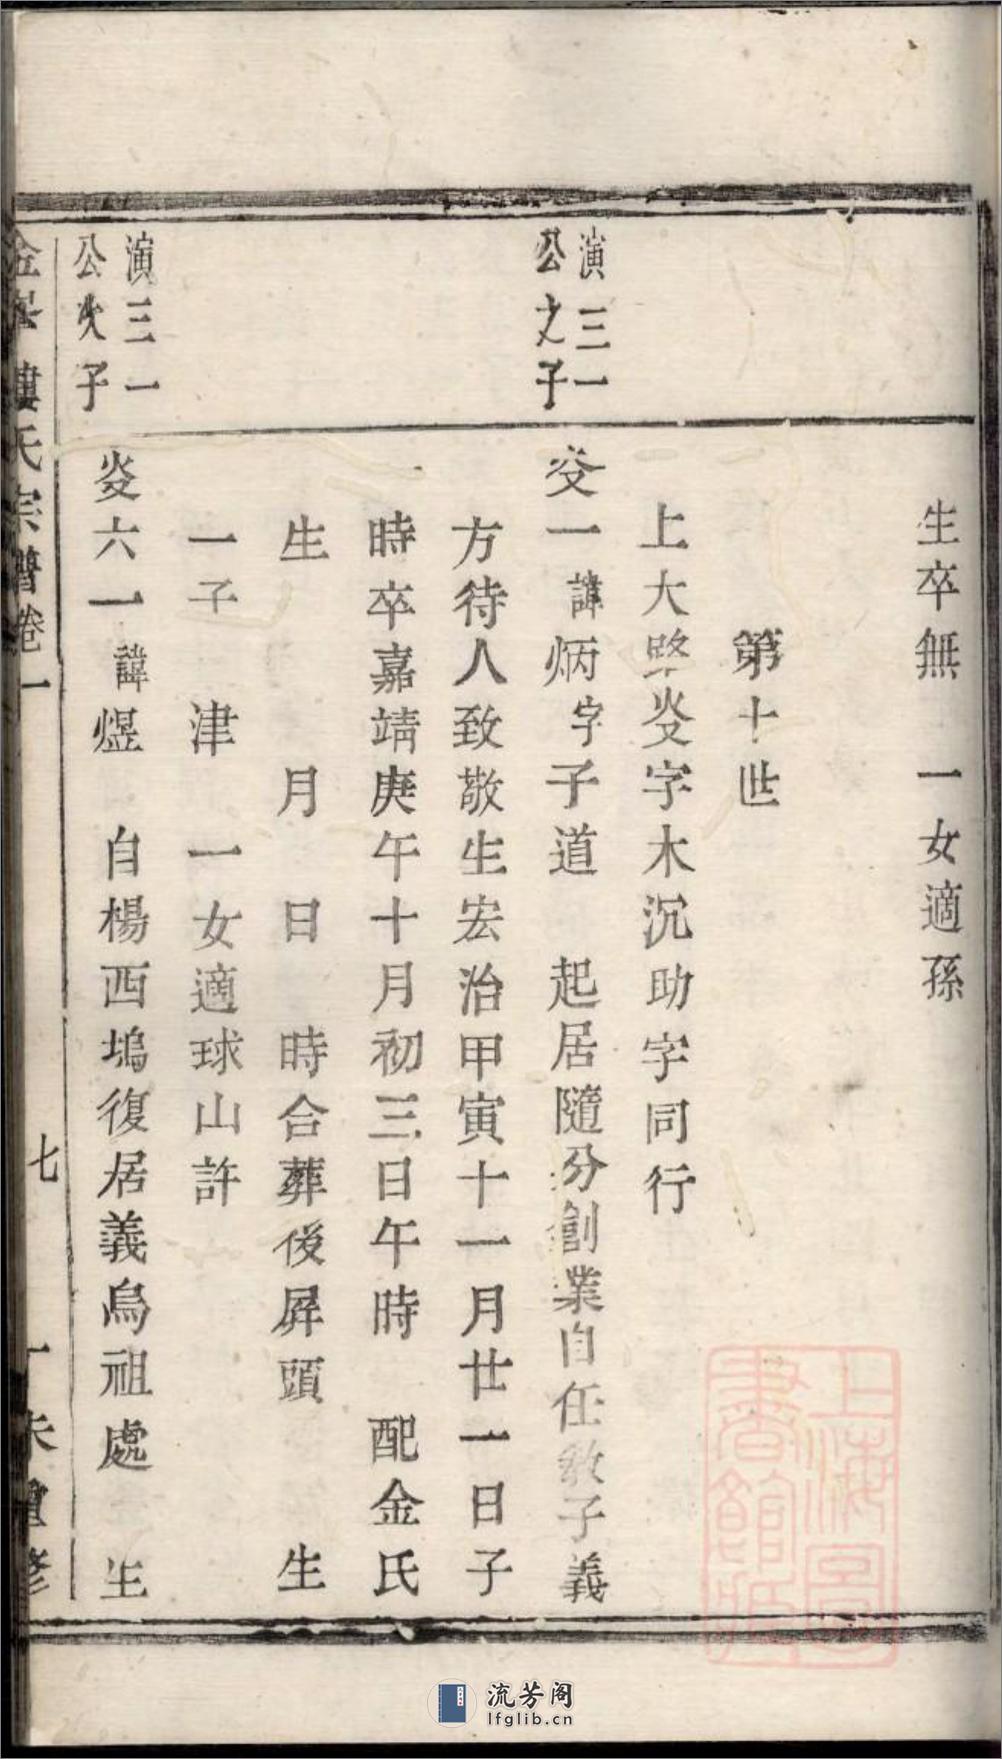 生卒無　一女適孫
第十世
上大畧㷋字木沉助字同行
演三一
公之子
㷋一諱炳字子道　起居隨分創業自任教子義
方待人致敬生宏治甲寅十一月廿一日子
時卒嘉靖庚午十月初三日午時　配金氏
生　月　日　時合葬後屏頭　生
一子　津　一女適球山許
演三一
公次子
㷋六一諱煜　自楊西塢復居義烏祖處　生
樓氏宗譜卷一　七　丁未重修
上海圖書館藏
流芳阁
lfglib.cn